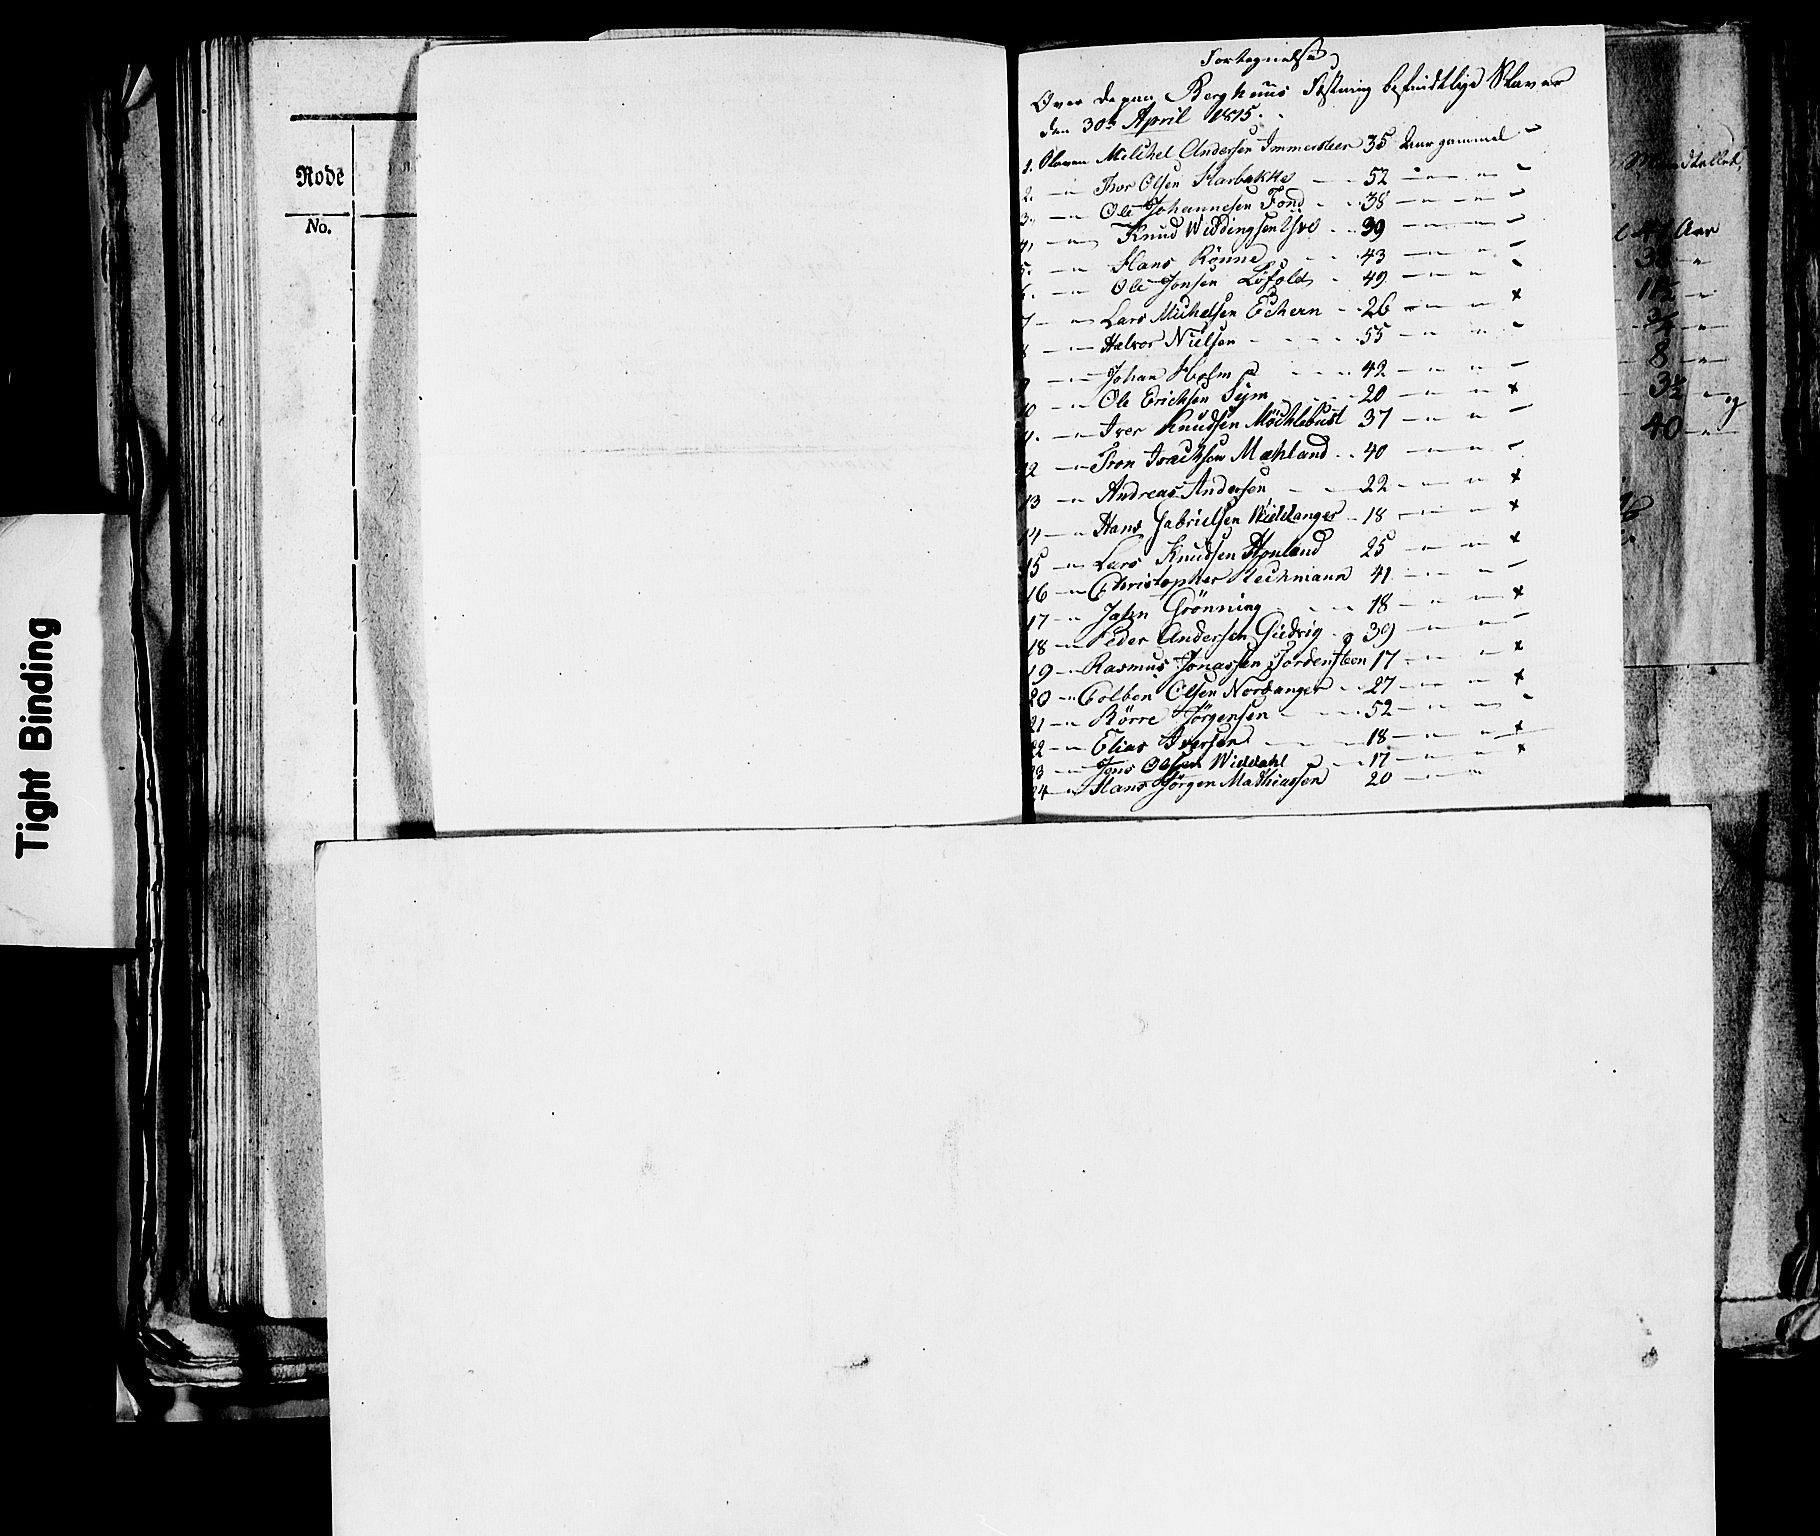 Tight Binding
Rode
No.
Fortegnelse
Over de paa Berghuus Festning befindtlige Slaver
den 30te April 1815.
1. Slaven Michel Andersen Immersteen 35 Aar gammel -
2. - " - Thor Olsen Harbakke - - 52 - " - " -
3. - " - Ole Johannesen Fond - - 38 - " - " -
4, - " - Knud Widdingsen - - 39 - " - " -
5. - " - Hans Rönne - - 43 - " - " -
6. - " - Ole Jonsen Löfold - 49 - " - " -
7 - " - Lars Michelsen Echern - 26 - " - " x
8 - " - Halvor Nielsen - - - - 55 - " - " -
9 - " - Johan Holm - - - 42 - " - " -
10 - " - Ole Erichsen Sejm - - 20 - " - " x
11. - " - Iver Knudsen Möchlebust 37 - " - " -
12 - " - Tron Mæhland - - 40 - " - " -
13 - " - Andreas Andersen - - 22 - " - " x
14 - " - Hans Gabrielsen - 18 - " - " x
15 - " - Lars Knudsen 25 - " - " x
16 - " - Christopher Techmann 41 - " - " -
17 - " - Jahn Grönning - - 18 - " - " x
18 - " - Peder Andersen Giervig - 39 - " - " -
19 - " - Rasmus Jonassen Tordensteen 17 - " - " x
20 - " - Colben Olsen Nordanger - 27 - " - " x
21 - " - Börre Jörgensen - - - 52 - " - " -
22 - " - Elias Iversen - - - 18 - " - " x
23 - " - Jens Olsen Widdahl - - 17 - " - " x
24 - " - Hans Jörgen Mathiassen 20 - " - "
Aar
8 - " -
3½ - " - og
40 - " -